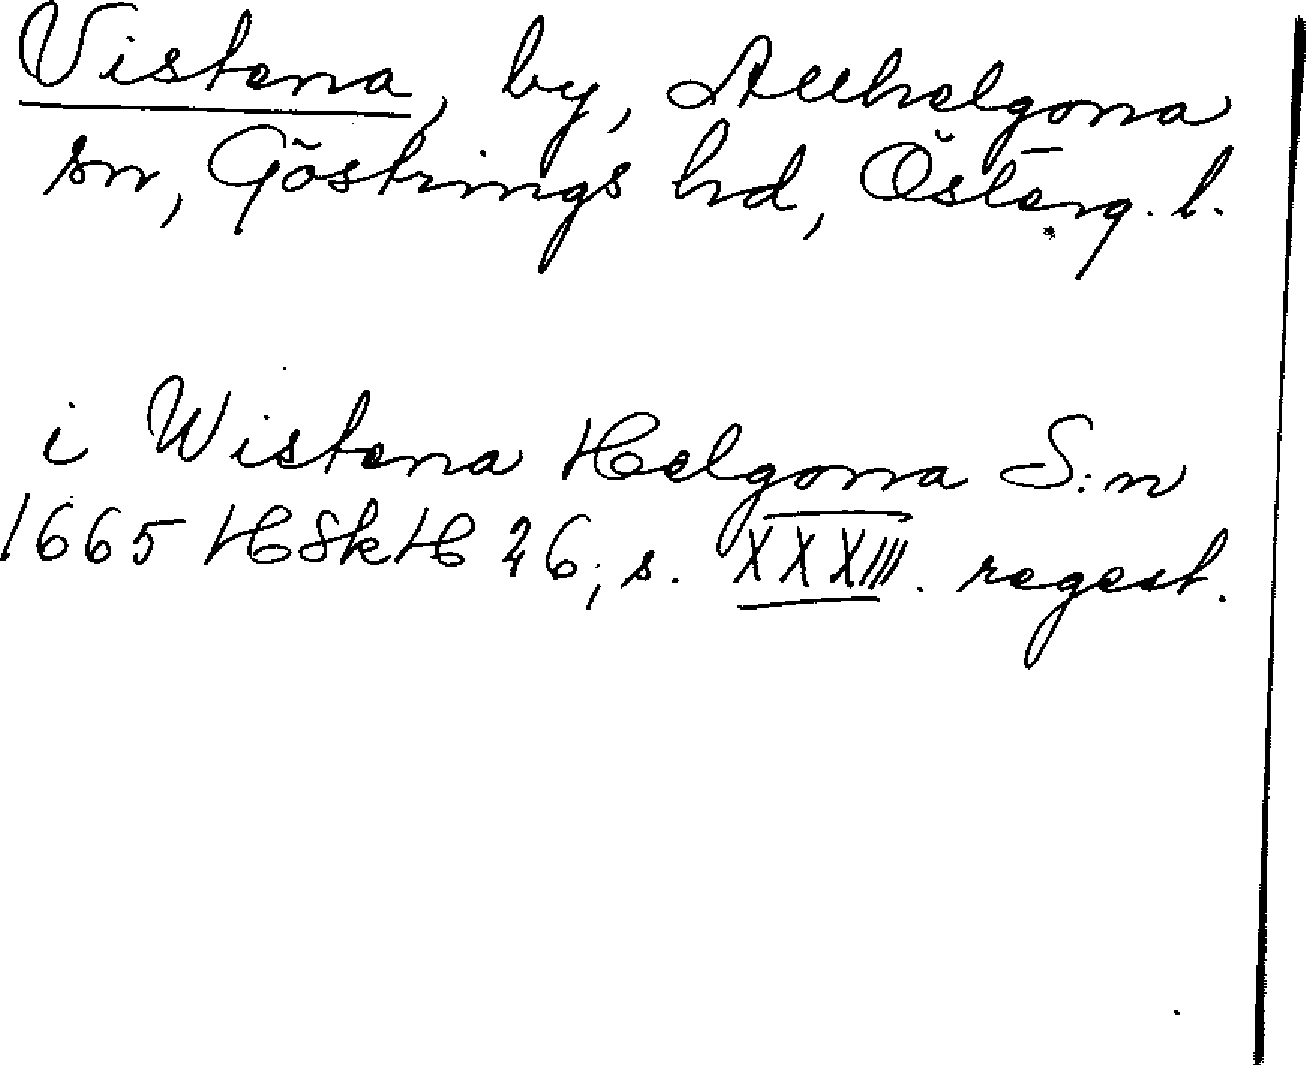 Vistena, by, Allhelgona
sn, Göstrings hd, Österg. l.
i Wistena Helgona S:n
1665 HSkH 26, s. XXXIII. regest.